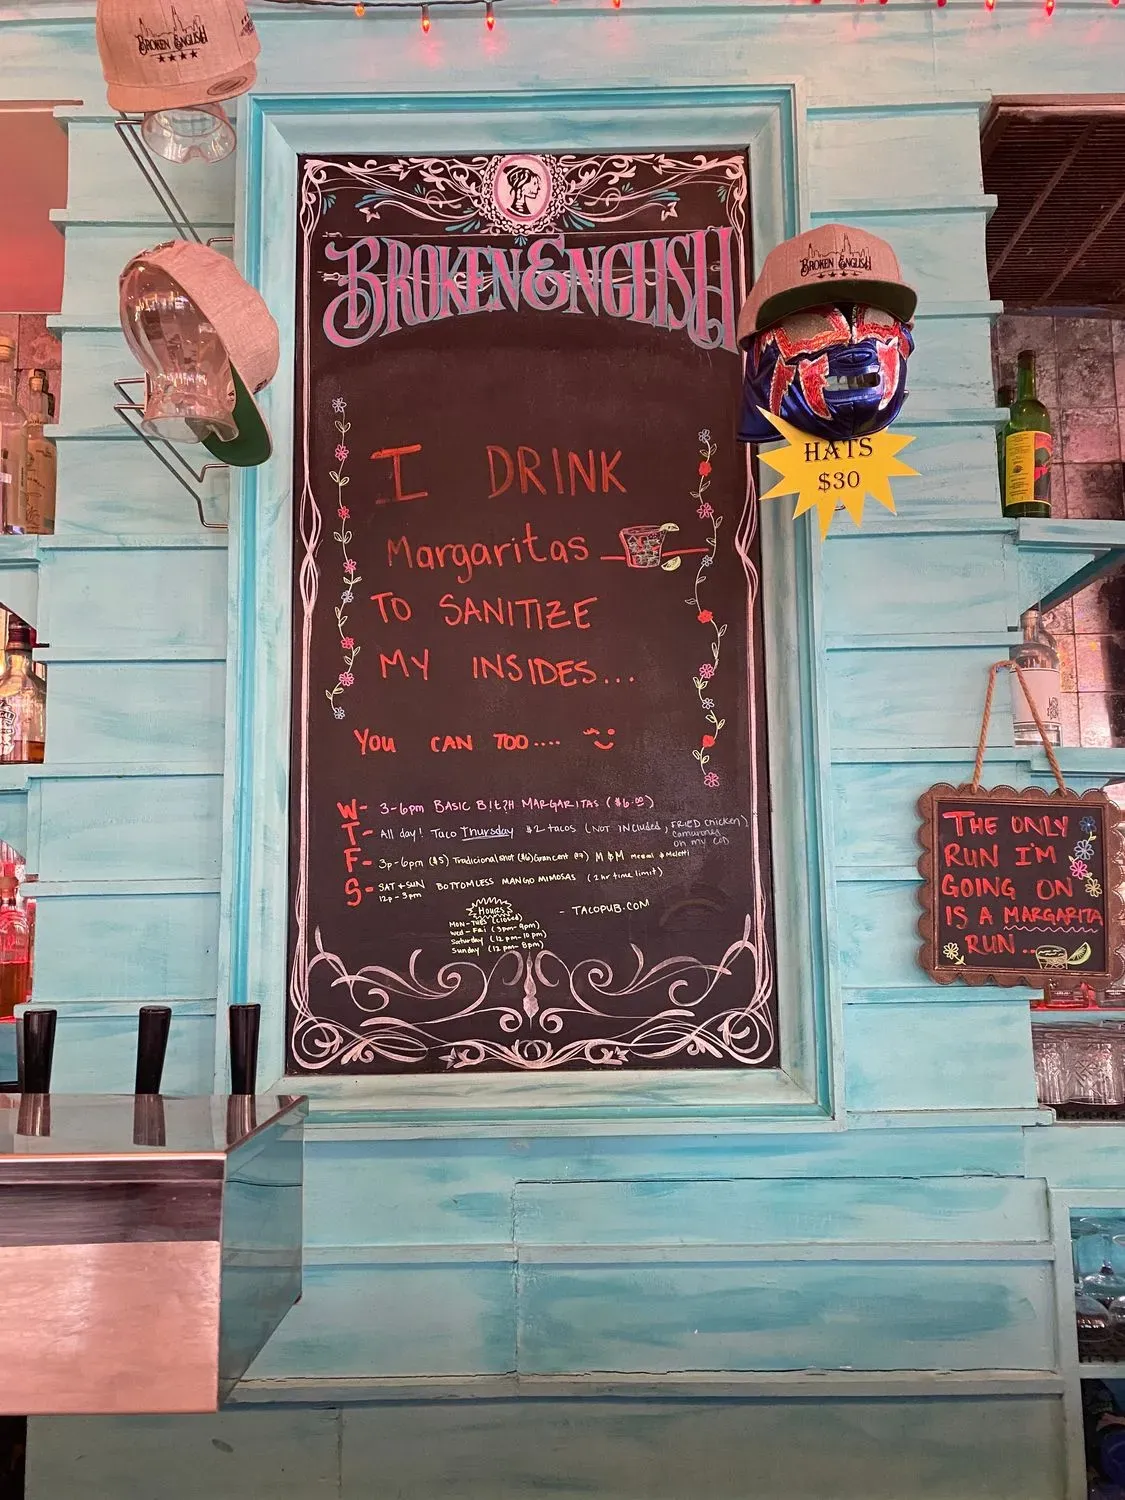 BROKEN ENGLISH
★★★★
BROKEN ENGLISH
BROKEN ENGLISH
★★★★
HATS
$30
I DRINK
Margaritas
TO SANITIZE
MY INSIDES...
YOU CAN TOO....
W- 3-6pm BASIC B!t?H MARGARITAS ($6.00)
T- All day! Taco Thursday $2 tacos (NOT INCluded, FRIED chicken)
camarones
on my COD
F- 3p-6pm ($5) Tradicional shot ($6) Gran cent M&M Mezcal & Meletti
S- SAT + SUN BOTTOMLESS MANGO MIMOSAS (2 hr time limit)
12p-3pm
Hours
- TACOPUB.COM
MON-TUES (closed)
Wed-Fri (3pm-9pm)
Saturday (12pm-10pm)
Sunday (12pm-8pm)
THE ONLY
RUN I'M
GOING ON
IS A MARGARITA
RUN...